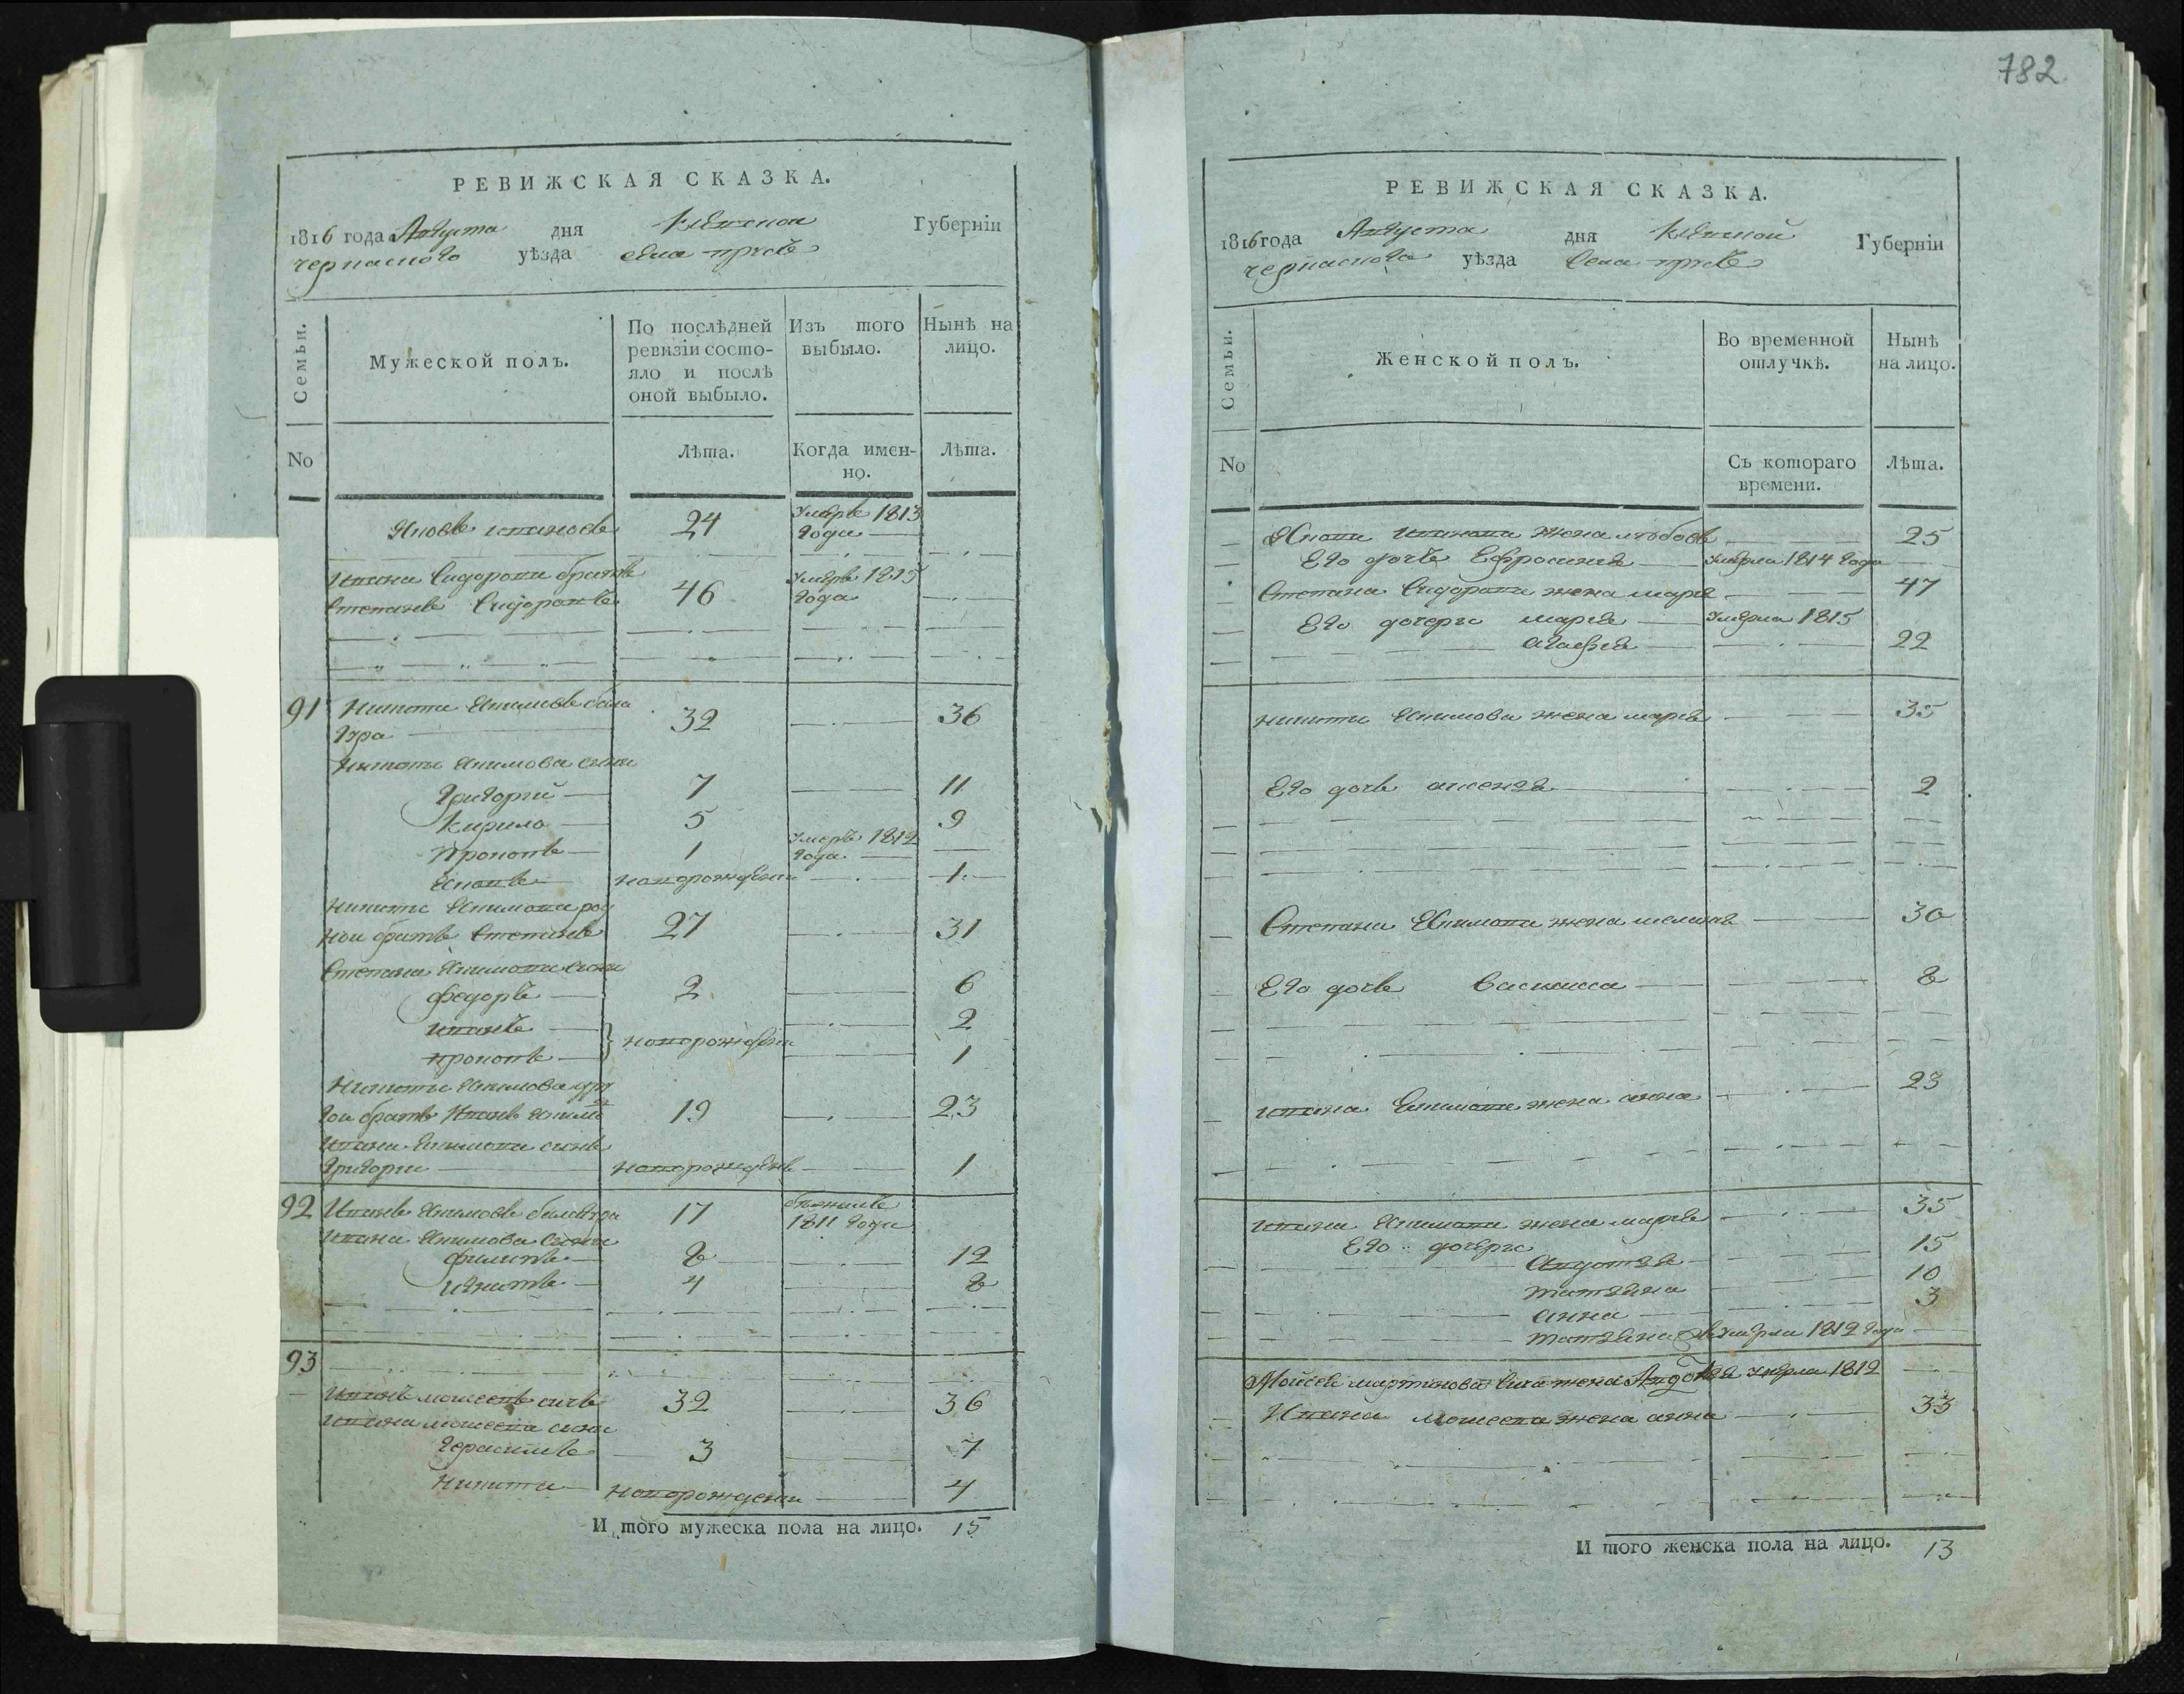 782
РЕВИЖСКАЯ СКАЗКА.
1816 года Августа дня Киевской Губерніи
черкаского уѣзда села
Семьи.
Мужеской полъ.
По послѣдней ревизіи состояло и послѣ оной выбыло.
Изъ того выбыло.
Нынѣ на лицо.
No
Лѣта.
Когда именно.
Лѣта.
Яковъ ивановъ 24 Умеръ 1813
года
Ивана Сидорова братъ
Степанъ Сидоровъ 46 Умеръ 1815
года
91 Никита Якимовъ
32 36
Никиты Якимова сыны
Григорій 7 11
Кирило 5 9
Прокопъ 1 Умеръ 1812
года
новорожденъ 1
Никиты Якимова род
ной братъ Степанъ 27 31
Степана Якимова сыны
федоръ 2 6
иванъ 2
прокопъ новорождены 1
Никиты Якимова дру
гои братъ Иванъ 19 23
Ивана Екимова сынъ
Григорий новорожденъ 1
92 Иванъ Якимовъ 17 бежалъ
1811 года
Ивана Якимова сыны
филипъ 8 12
игнатъ 4 8
93
Иванъ моисеевъ 32 36
Ивана моисеева сыны
Герасимъ 3 7
Никита новорожденъ 4
И того мужеска пола на лицо. 15
РЕВИЖСКАЯ СКАЗКА.
1816 года Августа дня Киевской Губерніи
черкаскова уѣзда Села
Семьи.
Женской полъ.
Во временной отлучкѣ.
Нынѣ на лицо.
No
Съ котораго времени.
Лѣта.
Якова иванова жена любовь 25
Его дочь Ефросиния Умерла 1814 года
Степана Сидорова жена марья 47
Его дочери мария Умерла 1815
агафия 22
никиты Якимова жена марья 35
Его дочь 2
Степана Якимова жена 30
Его дочь Василиса 8
ивана Екимова жена анна 23
ивана Якимова жена марья 35
Его дочери
Авдотья 15
татьяна 10
анна 3
татьяна Умерла 1812 года
Моисея мартинова жена Авдотья Умерла 1812
Ивана моисеева жена анна 33
И того женска пола на лицо. 13